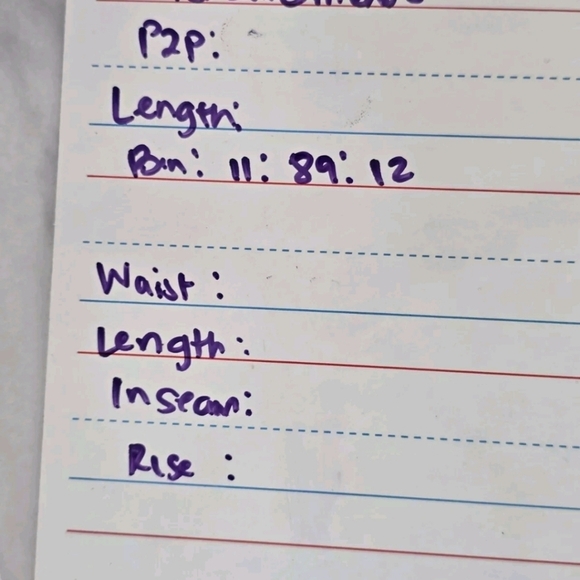 P2P:
Length:
Bin: 11: 89: 12
Waist :
Length:
Inseam:
Rise :